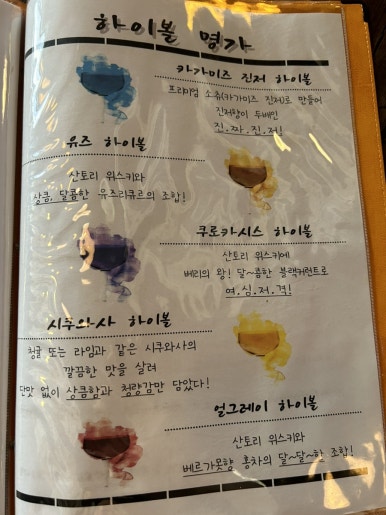 하이볼 명가
카가미즈 진저 하이볼
프리미엄 소츄(카가미즈 진저)로 만들어
진저향이 두배인
진.짜.진.저!
유즈 하이볼
산토리 위스키와
상큼, 달콤한 유즈리큐르의 조합!
쿠로카시스 하이볼
산토리 위스키에
베리의 왕! 달~콤한 블랙커런트로
여.심.저.격!
시쿠와사 하이볼
청귤 또는 라임과 같은 시쿠와사의
깔끔한 맛을 살려
단맛 없이 상큼함과 청량감만 담았다!
얼그레이 하이볼
산토리 위스키와
베르가못향 홍차의 달~달~한 조합!